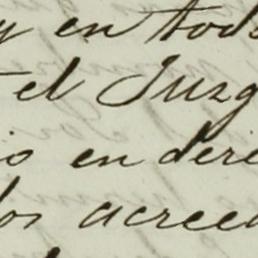 y en todo
el Juzg
io en dere
los acreed